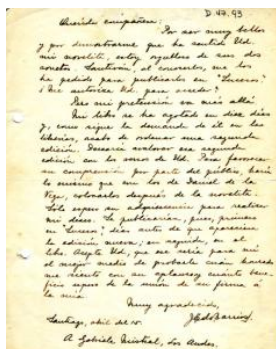 D.V7.93
Querida compañera:
Por ser muy bellos
y por demostrarme que ha sentido Ud.
mi novelita, estoy orgulloso de sus dos
sonetos. Santiván, al conocerlos, me los
ha pedido para publicarlos en "Sucesos".
¿Me autoriza Ud. para acceder?
Pero mi pretensión va más allá.
Mi libro se ha agotado en diez días
y, como sigue la demanda de él en las
librerías, acabo de ordenar una segunda
edición. Desearía valorar esa segunda
edición con los versos de Ud. Para favorecer
su comprensión por parte del público, haría
lo mismo que con los de Daniel de la
Vega, colocarlos después de la novelita.
Sólo espero su aquiescencia para realizar
mi deseo. Se publicarían, pues, primero
en "Sucesos", días antes de que apareciera
la edición nueva, y en seguida, en el
libro. Acepte Ud., que ese sería para mí
el mejor medio de probarle cuán honrado
me siento con su aplauso y cuánto bene-
ficio espero de la unión de su firma a
la mía.
Muy agradecido,
Santiago, abril del 15.
EdoBarrios
A Gabriela Mistral, Los Andes.